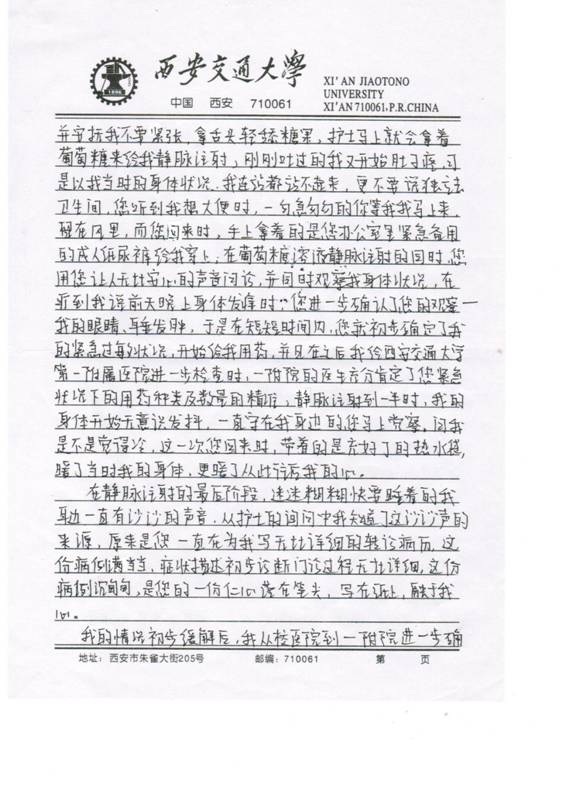 西安交通大学
XI'AN JIAOTONO
UNIVERSITY
中国 西安 710061
XI'AN 710061,P.R.CHINA
1896
并安抚我不要紧张,拿舌头轻舔糖果,护士马上就会拿着
葡萄糖来给我静脉注射,刚刚吐过的我又开始肚子疼,可
是以我当时的身体状况,我连站都站不起来,更不要说独立去
卫生间,您听到我想大便时,一句急匆匆的你等我我马上来,
留在风里,而您回来时,手上拿着的是您办公室里紧急备用
的成人纸尿裤给我穿上,在葡萄糖溶液静脉注射的同时,您
用您让人无比安心的声音问诊,并同时观察我身体状况,在
听到我说前天晚上身体发痒时,您进一步确认了您的观察一
我的眼睛、耳垂发肿,于是在短短时间内,您就初步确定了我
的紧急过敏状况,开始给我用药,并且在之后我给西安交通大学
第一附属医院进一步检查时,一附院的医生充分肯定了您紧急
状况下的用药种类及数量的精准,静脉注射到一半时,我的
身体开始无意识发抖,一直守在我身边的您马上觉察,问我
是不是觉得冷,这一次您回来时,带着的是充好了的热水袋,
暖了当时我的身体,更暖了从此往后我的心。
在静脉注射的最后阶段,迷迷糊糊快要睡着的我
耳边一直有沙沙的声音,从护士的询问中我知道了这沙沙声的
来源,原来是您一直在为我写无比详细的转诊病历,这
份病例满当当,症状描述初步诊断门诊过程无比详细,这份
病例沉甸甸,是您的一份仁心落在笔头,写在纸上,融于我
心。
我的情况初步缓解后,我从校医院到一附院进一步确
地址:西安市朱雀大街205号 邮编:710061 第 页